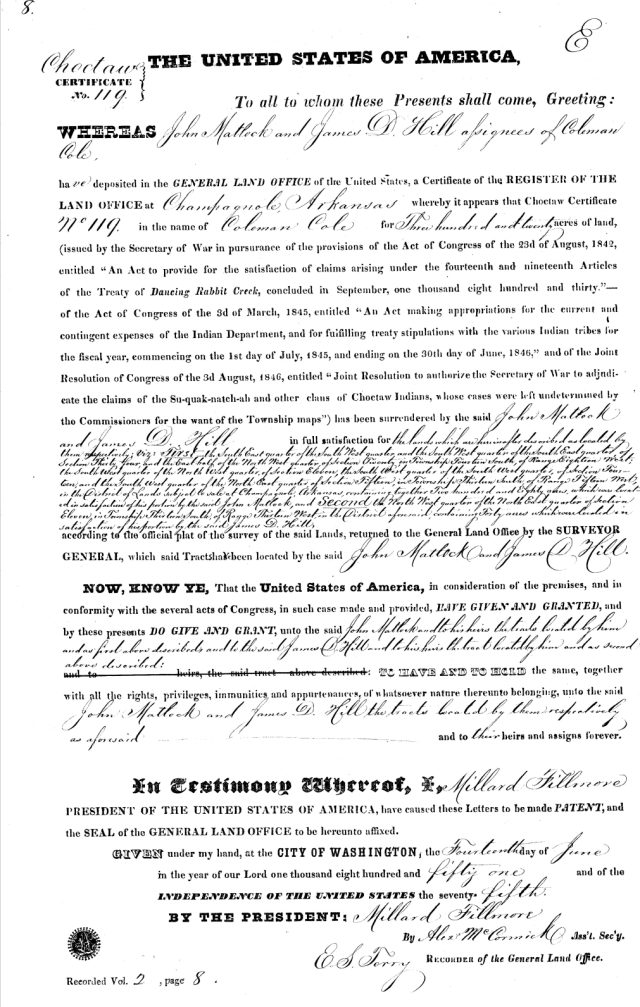 8.
E
Choctaw
CERTIFICATE
No. 119.
THE UNITED STATES OF AMERICA,
To all to whom these Presents shall come, Greeting:
WHEREAS John Matlock and James D. Hill assignees of Coleman
Cole.
have deposited in the GENERAL LAND OFFICE of the United States, a Certificate of the REGISTER OF THE
LAND OFFICE at Champagnole, Arkansas whereby it appears that Choctaw Certificate
No 119 in the name of Coleman Cole for Three hundred and twenty acres of land,
(issued by the Secretary of War in pursurance of the provisions of the Act of Congress of the 23d of August, 1842,
entitled "An Act to provide for the satisfaction of claims arising under the fourteenth and nineteenth Articles
of the Treaty of Dancing Rabbit Creek, concluded in September, one thousand eight hundred and thirty."—
of the Act of Congress of the 3d of March, 1845, entitled "An Act making appropriations for the current and
contingent expenses of the Indian Department, and for fulfilling treaty stipulations with the various Indian tribes for
the fiscal year, commencing on the 1st day of July, 1845, and ending on the 30th day of June, 1846," and of the Joint
Resolution of Congress of the 3d August, 1846, entitled "Joint Resolution to authorize the Secretary of War to adjudi-
cate the claims of the Su-quak-natch-ah and other clans of Choctaw Indians, whose cases were left undetermined by
the Commissioners for the want of the Township maps") has been surrendered by the said John Matlock
and James D. Hill in full satisfaction for the lands which are hereinafter described as located by
them respectively; viz: First the South East quarter of the South West quarter, and the South West quarter of the South East quarter of
Section Thirty four, and the East half of the North West quarter, of Section Twenty, in Township of Range Eighteen West;
the South West quarter of the North West quarter, of Section Eleven, the South West quarter of the South West quarter, of Section Four-
teen, and the South West quarter of the North East quarter of Section Fifteen, in Township Thirteen South, of Range Fifteen West,
in the District of Lands subject to sale at Champagnole, Arkansas, containing together Five hundred and Eighty acres, which were locat-
ed in satisfaction of his portion by the said John Matlock, and Second the North West quarter of the North East quarter of Section
Eleven, in Township of Range Thirteen West in the District aforesaid containing Forty acres which were located in
satisfaction of his portion by the said James D. Hill.
according to the official plat of the survey of the said Lands, returned to the General Land Office by the SURVEYOR
GENERAL, which said Tracts have been located by the said John Matlock and James D. Hill.
NOW, KNOW YE, That the United States of America, in consideration of the premises, and in
conformity with the several acts of Congress, in such case made and provided, HAVE GIVEN AND GRANTED, and
by these presents DO GIVE AND GRANT, unto the said John Matlock and to his heirs the tracts located by him
and as first above described and to the said James D. Hill and to his heirs the tract located by him and as second
above described:
and to heirs, the said tract above described: TO HAVE AND TO HOLD the same, together
with all the rights, privileges, immunities, and appurtenances, of whatsoever nature thereunto belonging, unto the said
John Matlock and James D. Hill the tracts located by them respectively
as aforesaid and to their heirs and assigns forever.
In Testimony Whereof, I, Millard Fillmore
PRESIDENT OF THE UNITED STATES OF AMERICA, have caused these Letters to be made PATENT, and
the SEAL of the GENERAL LAND OFFICE to be hereunto affixed.
GIVEN under my hand, at the CITY OF WASHINGTON, the Fourteenth day of June
in the year of our Lord one thousand eight hundred and fifty one and of the
INDEPENDENCE OF THE UNITED STATES the seventy-fifth.
BY THE PRESIDENT: Millard Fillmore
By Alex McCormick Ass't. Sec'y.
E. S. Terry RECORDER of the General Land Office.
Recorded Vol. 2, page 8.